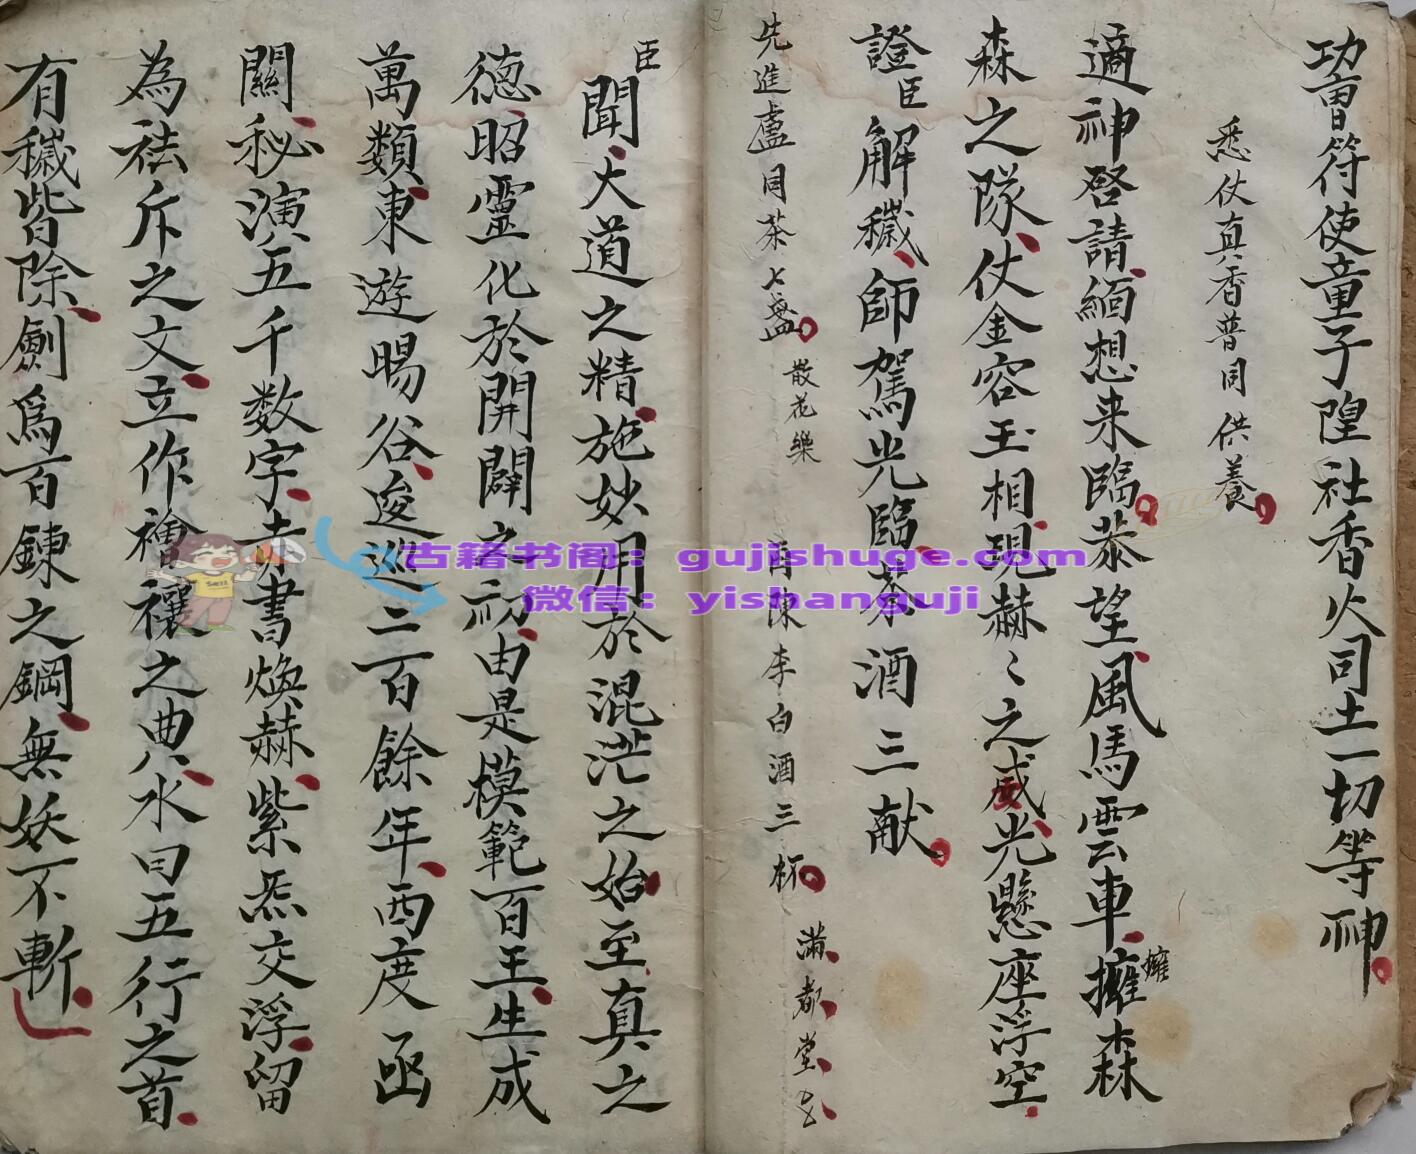 功曹符使童子隍社香火司土一切等神
悉仗真香普同供養
適神啓請緬想来臨恭望風馬雲車擁森
擁
森之隊仗金容玉相現赫〻之威光懸座浮空
證臣解穢師駕光臨茶酒三献
先進盧同茶七盞 散花樂 再陳李白酒三杯 滿都堂
臣聞大道之精施妙用於混茫之始至真之
德昭靈化於開闢之初由是模範百王生成
萬類東遊暘谷逡巡二百餘年西度函
關秘演五千数字赤書煥赫紫炁交浮留
為祛斥之文立作禬禳之典水曰五行之首
有穢皆除劍為百鍊之鋼無妖不斬
古籍书阁：gujishuge.com
微信：yishanguji